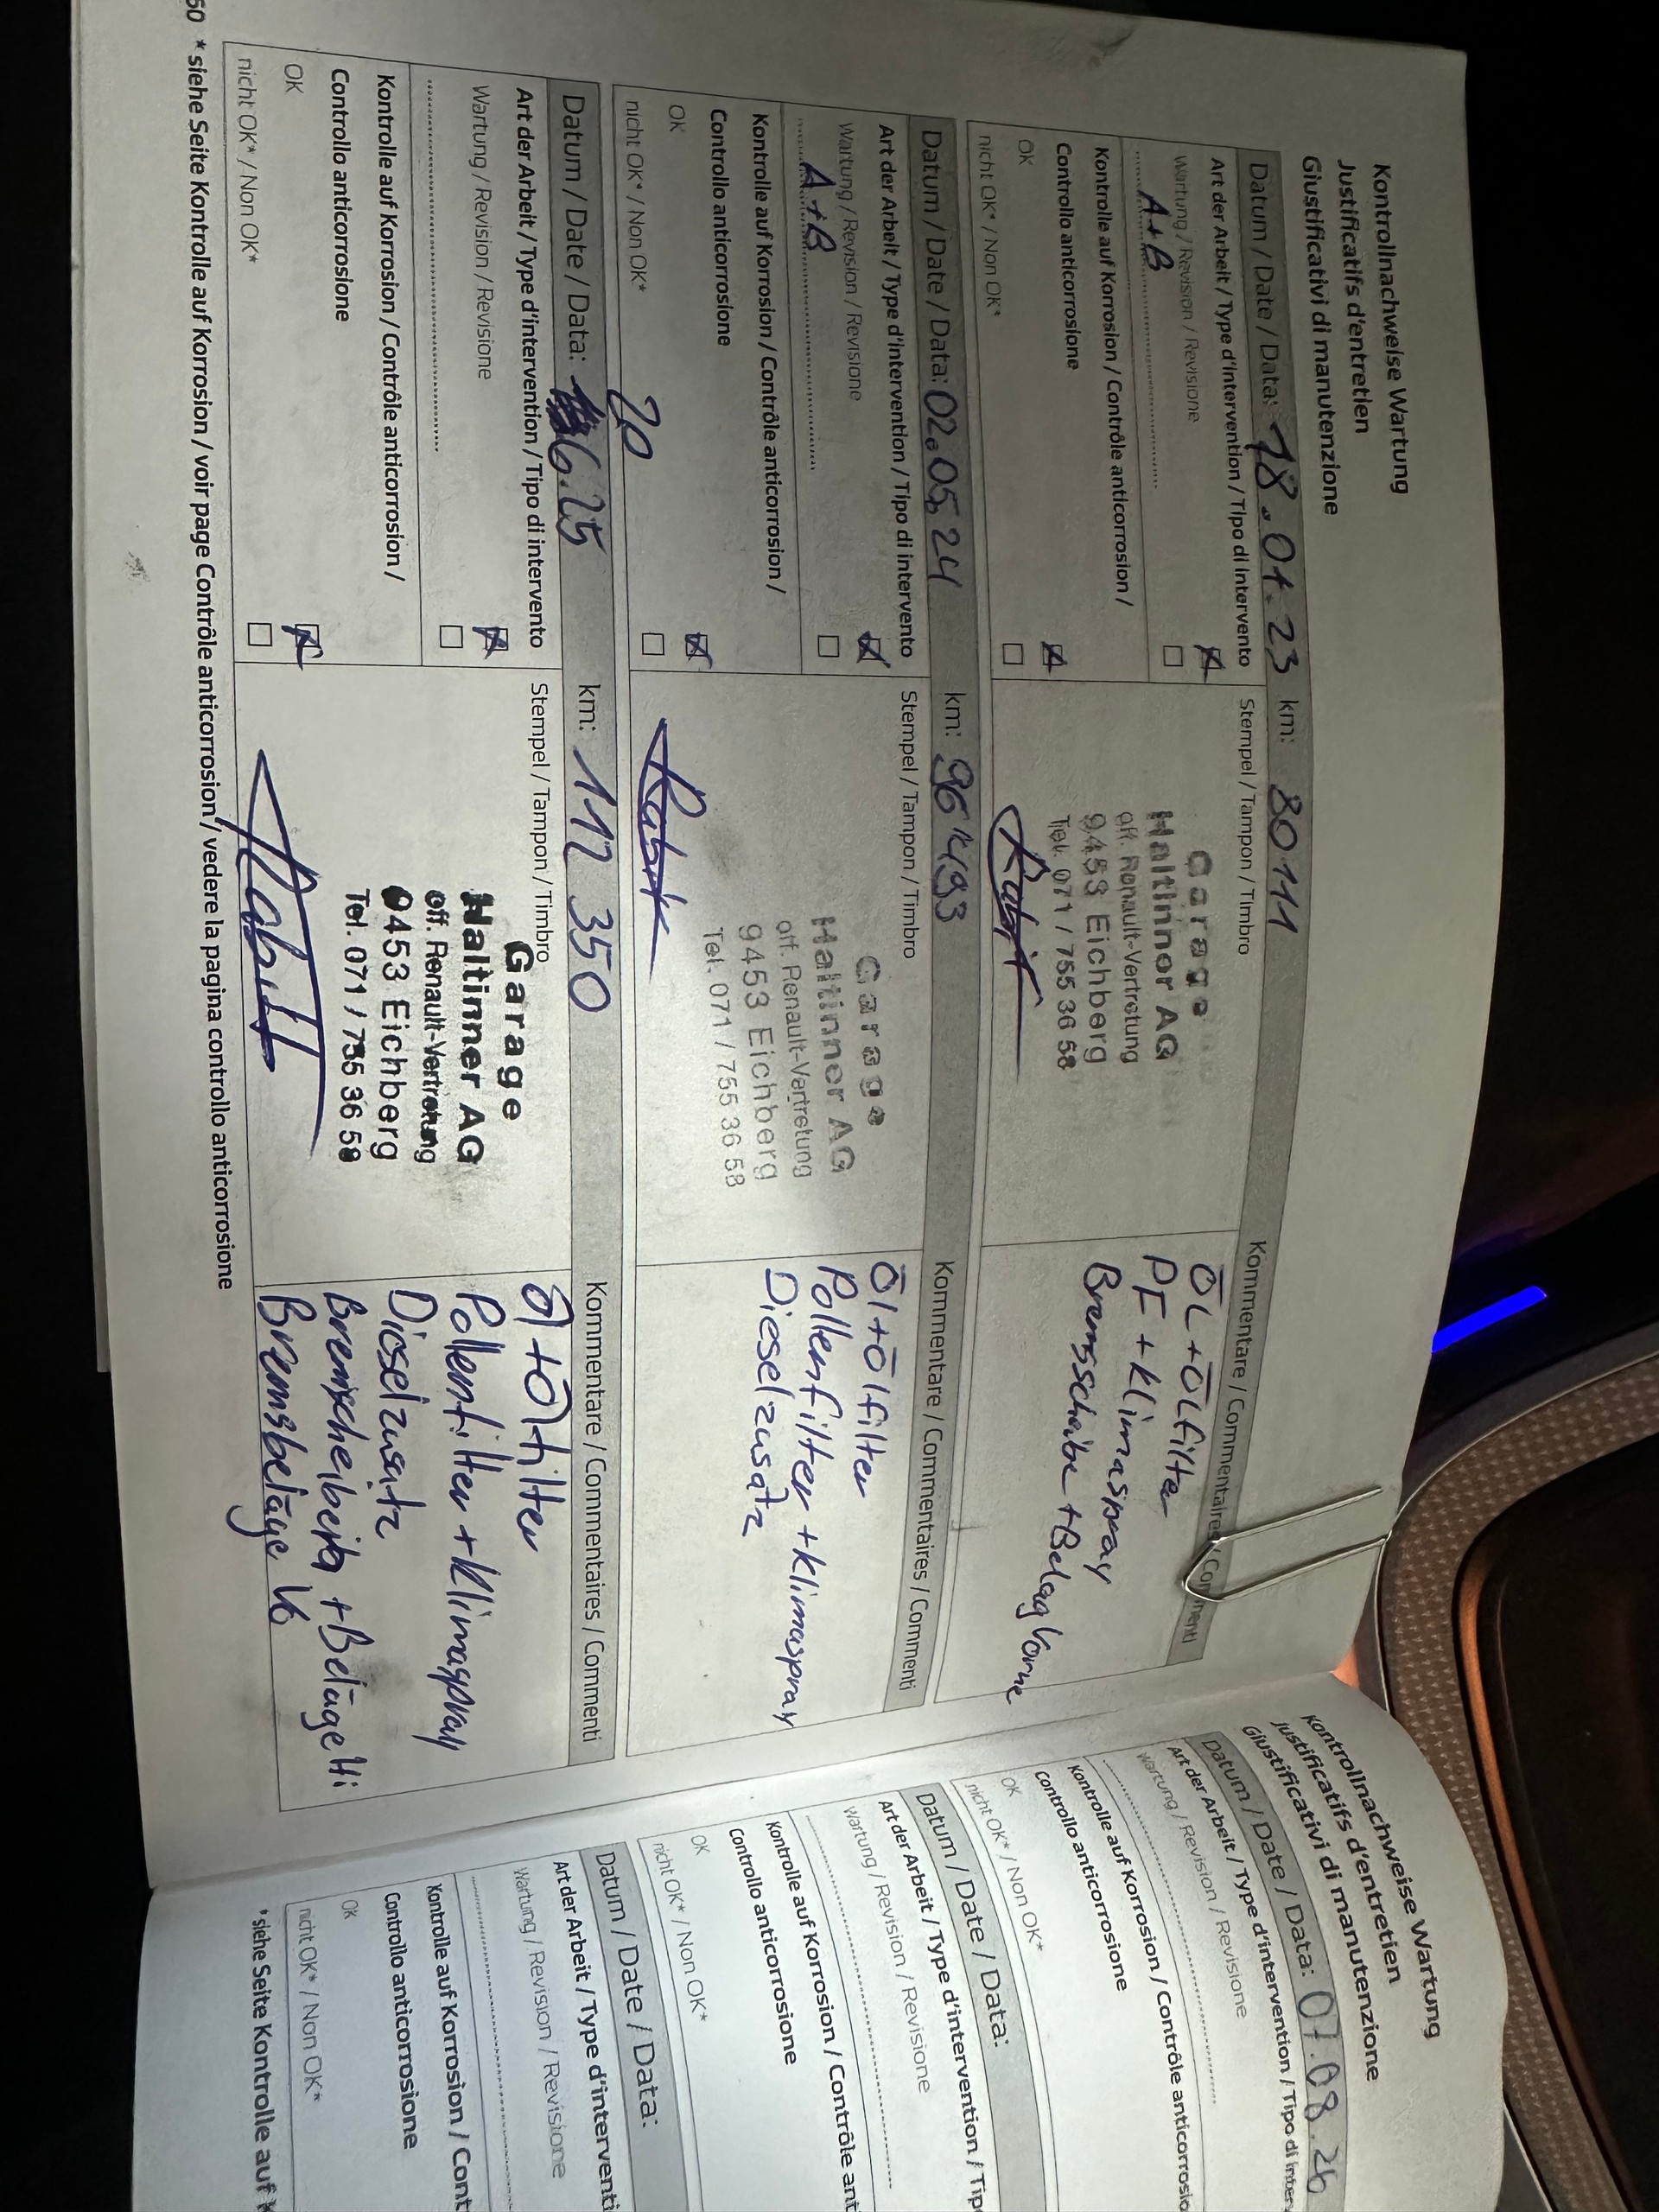 Kontrollnachweise Wartung
Justificatifs d'entretien
Giustificativi di manutenzione
Datum / Date / Data: 18.04.23 km: 8011
Art der Arbeit / Type d'intervention / Tipo di intervento
Wartung / Revision / Revisione
A+B
Kontrolle auf Korrosion / Contrôle anticorrosion /
Controllo anticorrosione
OK
nicht OK* / Non OK*
Stempel / Tampon / Timbro
Garage
Haltinner AG
off. Renault-Vertretung
9453 Eichberg
Tel. 071 / 755 36 58
Kommentare / Commentaires / Commenti
ÖL+Ölfilter
PF + Klimaspray
Bremsscheibe + Belag Vorne
Datum / Date / Data: 02.05.24 km: 96'493
Art der Arbeit / Type d'intervention / Tipo di intervento
Wartung / Revision / Revisione
A+B
Kontrolle auf Korrosion / Contrôle anticorrosion /
Controllo anticorrosione
OK
nicht OK* / Non OK*
Stempel / Tampon / Timbro
Garage
Haltinner AG
off. Renault-Vertretung
9453 Eichberg
Tel. 071 / 755 36 58
Kommentare / Commentaires / Commenti
Öl+Ölfilter
Pollenfilter + Klimaspray
Dieselzusatz
20
Datum / Date / Data: 6.25 km: 112 350
Art der Arbeit / Type d'intervention / Tipo di intervento
Wartung / Revision / Revisione
Kontrolle auf Korrosion / Contrôle anticorrosion /
Controllo anticorrosione
OK
nicht OK* / Non OK*
Stempel / Tampon / Timbro
Garage
Haltinner AG
off. Renault-Vertretung
9453 Eichberg
Tel. 071 / 755 36 58
Kommentare / Commentaires / Commenti
Öl+Ölfilter
Pollenfilter + Klimaspray
Dieselzusatz
+Beläge Hi
Bremsbeläge Vo
60 *siehe Seite Kontrolle auf Korrosion / voir page Contrôle anticorrosion / vedere la pagina controllo anticorrosione
Kontrollnachweise Wartung
Justificatifs d'entretien
Giustificativi di manutenzione
Datum / Date / Data: 07.08.26
Art der Arbeit / Type d'intervention / Tipo di
Wartung / Revision / Revisione
Kontrolle auf Korrosion / Contrôle
Controllo anticorrosione
OK
nicht OK* / Non OK*
Datum / Date / Data:
Art der Arbeit / Type d'intervention /
Wartung / Revision / Revisione
Kontrolle auf Korrosion / Contrôle
Controllo anticorrosione
OK
nicht OK* / Non OK*
Datum / Date / Data:
Art der Arbeit / Type
Wartung / Revision / Revisione
Kontrolle auf Korrosion /
Controllo anticorrosione
OK
nicht OK* / Non OK*
*siehe Seite Kontrolle auf